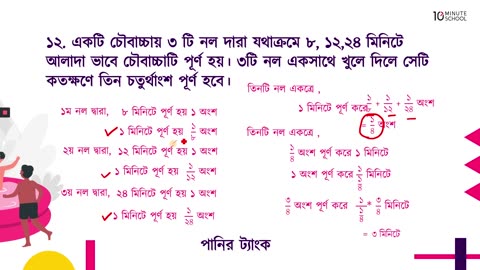 10 MINUTE
SCHOOL
১২. একটি চৌবাচ্চায় ৩ টি নল দারা যথাক্রমে ৮, ১২,২৪ মিনিটে
আলাদা ভাবে চৌবাচ্চাটি পূর্ণ হয়। ৩টি নল একসাথে খুলে দিলে সেটি
কতক্ষণে তিন চতুর্থাংশ পূর্ণ হবে।
১ম নল দ্বারা, ৮ মিনিটে পূর্ণ হয় ১ অংশ
১ মিনিটে পূর্ণ হয় ১/৮ অংশ
২য় নল দ্বারা, ১২ মিনিটে পূর্ণ হয় ১ অংশ
১ মিনিটে পূর্ণ হয় ১/১২ অংশ
৩য় নল দ্বারা, ২৪ মিনিটে পূর্ণ হয় ১ অংশ
১ মিনিটে পূর্ণ হয় ১/২৪ অংশ
তিনটি নল একত্রে ,
১ মিনিটে পূর্ণ করে ১/৮ + ১/১২ + ১/২৪ অংশ
= ১/৪ অংশ
তিনটি নল একত্রে ,
১/৪ অংশ পূর্ণ করে ১ মিনিটে
১ অংশ পূর্ণ করে ১/(১/৪) মিনিটে
৩/৪ অংশ পূর্ণ করে ১/(১/৪) * ৩/৪ মিনিটে
= ৩ মিনিটে
পানির ট্যাংক